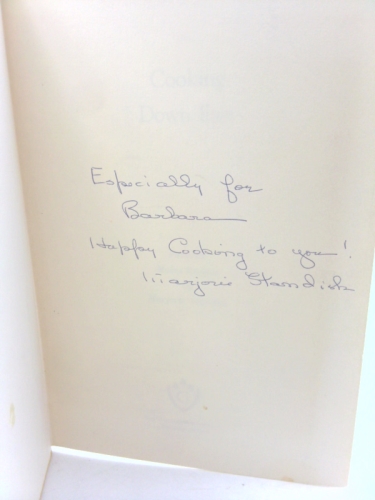 Cooking
Down East
Especially for
Barbara
Happy Cooking to you!
Marjorie Standish